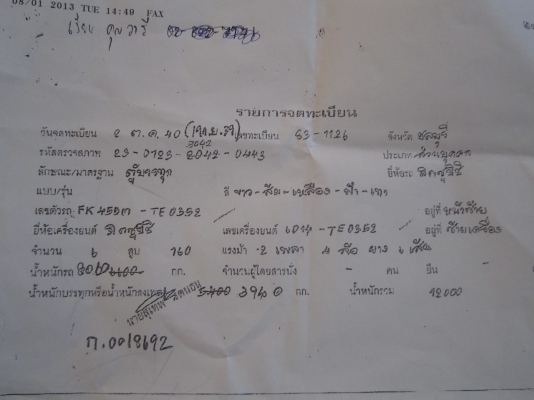 08/01 2013 TUE 14:49 FAX
เรียน คุณ วารี
รายการจดทะเบียน
วันจดทะเบียน 2 ต.ค. 40 เลขทะเบียน 83-1126 จังหวัด ชลบุรี
รหัสตรวจสภาพ 23-0123-2042-0443 ประเภท ส่วนบุคคล
ลักษณะ/มาตรฐาน ตู้บรรทุก ยี่ห้อรถ มิตซูบิชิ
แบบ/รุ่น สี ขาว-ส้ม-เหลือง-ฟ้า-เทา
เลขตัวรถ FK455J-TE0352 อยู่ที่ หน้าซ้าย
ยี่ห้อเครื่องยนต์ มิตซูบิชิ เลขเครื่องยนต์ 6D14-TE0352 อยู่ที่ ซ้ายเครื่อง
จำนวน 6 สูบ 160 แรงม้า 2 เพลา 4 ล้อ ยาง 6 เส้น
น้ำหนักรถ กก. จำนวนผู้โดยสารนั่ง - คน ยืน -
น้ำหนักบรรทุกหรือน้ำหนักลงเพลา 3940 กก. น้ำหนักรวม 12000
ก.0018692